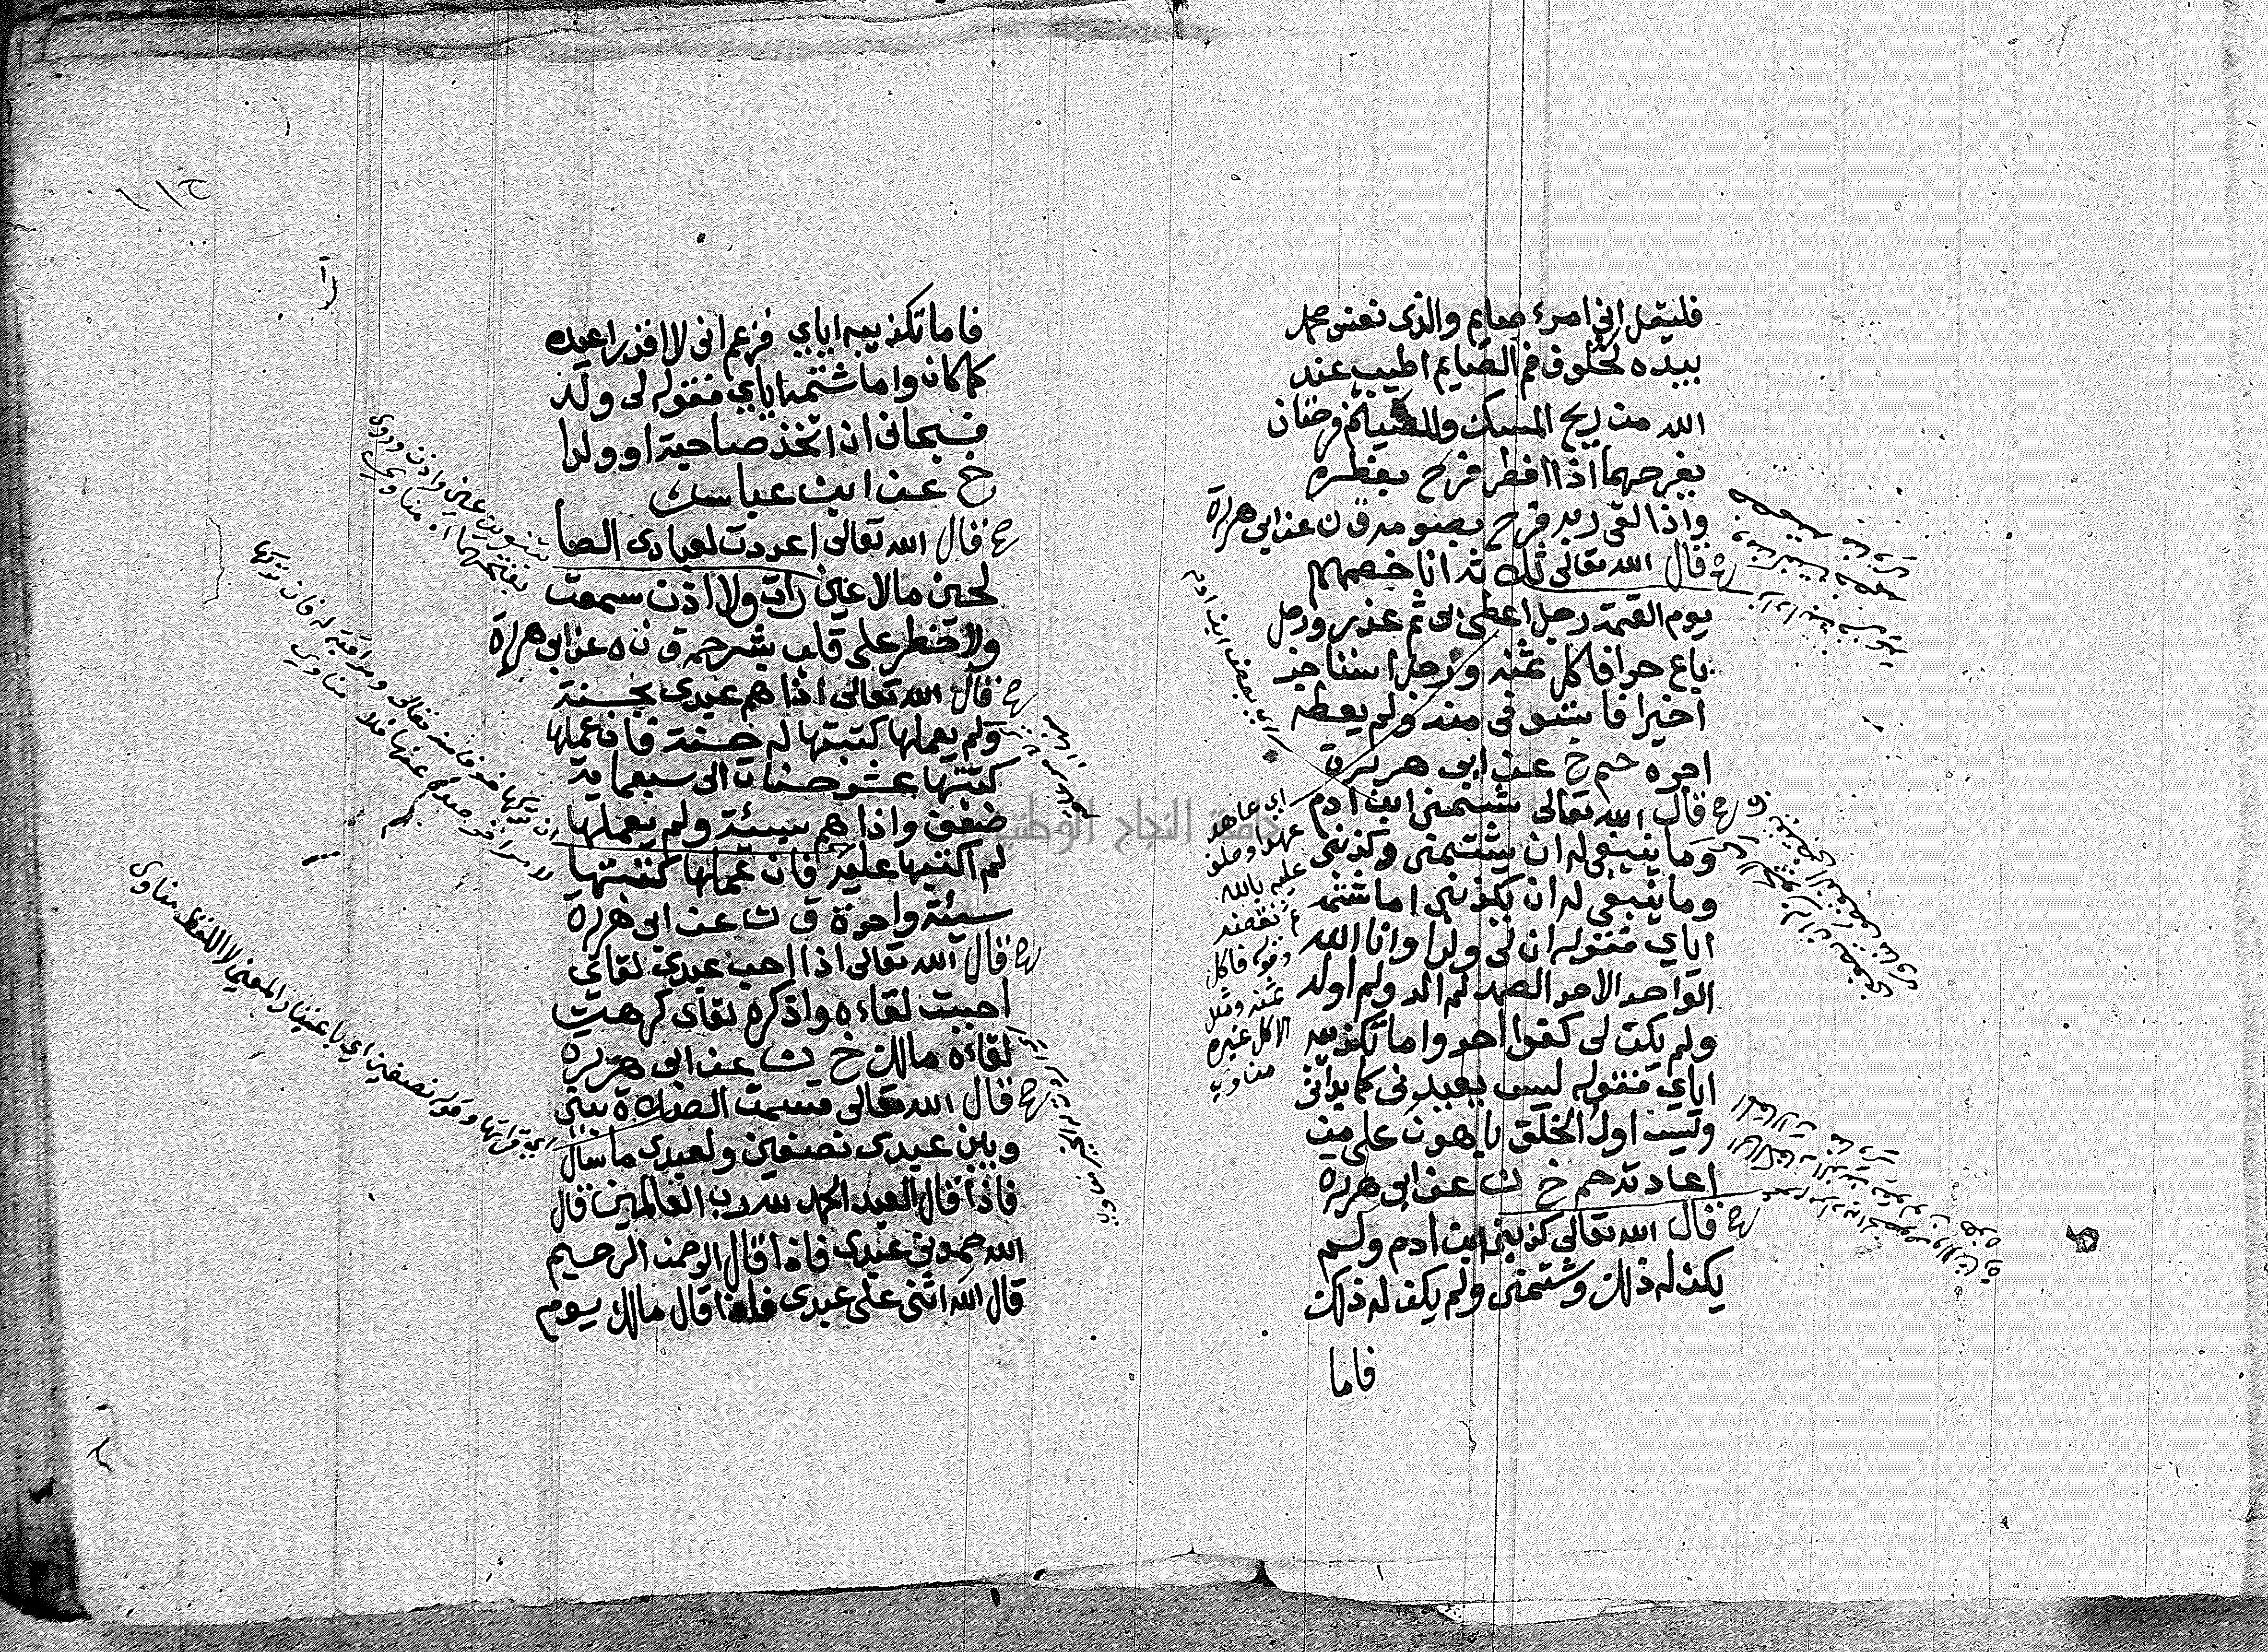 فليقل اني امرء صايم والذي نفس محمد
بيده لخلوف فم الصايم اطيب عند
الله من ريح المسك وللصيائم فرحتان
يفرحهما اذا افطر فرح بفطره
واذا لقى ربه فرح بصومه ق ن عن ابي هريرة
قال الله تعالى ثلاثة انا خصمهم
يوم القيمة رجل اعطى بي ثم غدر ورجل
باع حرا فاكل ثمنه ورجل استاجر
اجيرا فاستوفى منه ولم يعطه
اجره حم خ عن ابي هريرة
قال الله تعالى شتمني ابن ادم
وما ينبغي له ان يشتمني وكذبني
وما ينبغي له ان يكذبني اما شتمه
اياي فقوله ان لي ولدا وانا الله
الواحد الاحد الصمد لم الد ولم اولد
ولم يكن لي كفوا احد واما تكذيبه
اياي فقوله ليس يعيدني كما بداني
وليس اول الخلق باهون علي من
اعادته حم خ ن عن ابي هريره
قال الله تعالى كذبني ابن ادم ولم
يكن له ذلك وشتمني ولم يكن له ذلك
فاما
اي بعض ابن ادم
اي عاهد
عهدا وحلف
عليه بالله
ثم نقضه
وقوله فاكل
ثمنه ومثل
الاكل غيره
مناوي
١١٢
فاما تكذيبه اياي فزعم اني لا اقدر اعيده
كما كان واما شتمه اياي فقوله لي ولد
فسبحاني ان اتخذ صاحبة او ولدا
خ عن ابن عباس
قال الله تعالى اعددت لعبادي الصا
لحين ما لا عين رات ولا اذن سمعت
ولا خطر على قلب بشر حم ق ن ه عن ابي هريرة
قال الله تعالى اذا هم عبدي بحسنة
ولم يعملها كتبتها له حسنة فان عملها
كتبتها عشر حسنات الى سبعماية
ضعف واذا هم بسيئة ولم يعملها
لم اكتبها عليه فان عملها كتبتها
سيئة واحدة ق ت عن ابي هريرة
قال الله تعالى اذا احب عبدي لقاي
احببت لقاءه واذا كره لقاي كرهت
لقاءه مالك خ ن عن ابي هريره
قال الله تعالى قسمت الصلاة بيني
وبين عبدي نصفين ولعبدي ما سال
فاذا قال العبد الحمد لله رب العالمين قال
الله حمدني عبدي فاذا قال الرحمن الرحيم
قال الله اثنى علي عبدي فاذا قال مالك يوم
بتنوين عين واذن وروي
بفتحهما اه مناوي
ان تركها خوفا منه تعالى ومراقبة له فان تركها
لامر اخر صده عنها فلا مناوي
اي قراتها وقوله نصفين اي باعتبار المعنى لا اللفظ مناوي
جامعة النجاح الوطنية